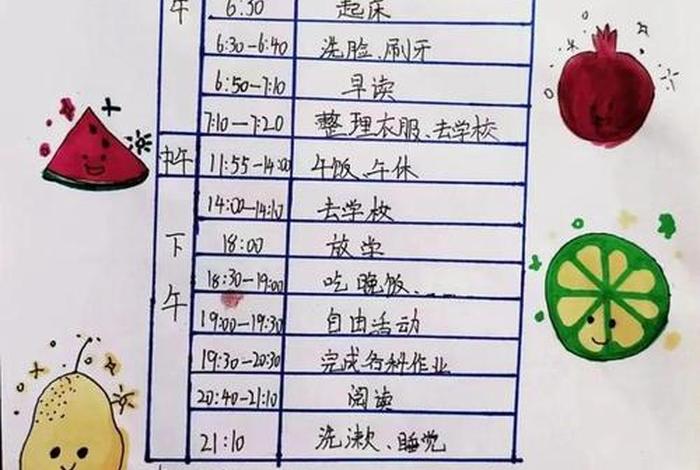 午 6:30 起床
6:30-6:40 洗脸、刷牙
6:50-7:10 早读
7:10-7:20 整理衣服、去学校
中午 11:55-14:00 午饭、午休
下午 14:00-14:10 去学校
18:00 放学
18:30-19:00 吃晚饭、
19:00-19:30 自由活动
19:30-20:30 完成各科作业
20:40-21:10 阅读
21:10 洗漱、睡觉